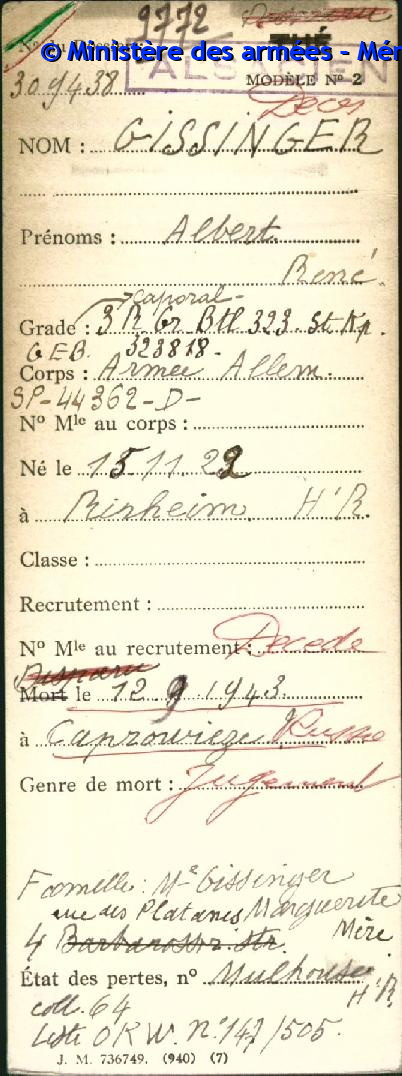 9772
© Ministère des armées - Mém
309438
ALSACIEN
MODÈLE Nº 2
Décès
NOM : GISSINGER
Prénoms : Albert
René
caporal -
Grade : 3 R Gr Btl 323 St Kp.
G E B. 323818 -
Corps : Armée Allem.
SP - 44362 - D -
Nº Mle au corps :
Né le 15.11.22
à Rixheim. H'R.
Classe :
Recrutement :
Nº Mle au recrutement : Décédé
Disparu
Mort le 12 9 1943.
à Caprowieze Russie
Genre de mort : Jugement
Famille : Me Gissinger
rue des Platanes Marguerite
4 Barbarossa str. Mère
État des pertes, nº Mulhouse
H'R
coll. 64
Liste OKW. Nº 147/505.
J. M. 736749. (940) (7)